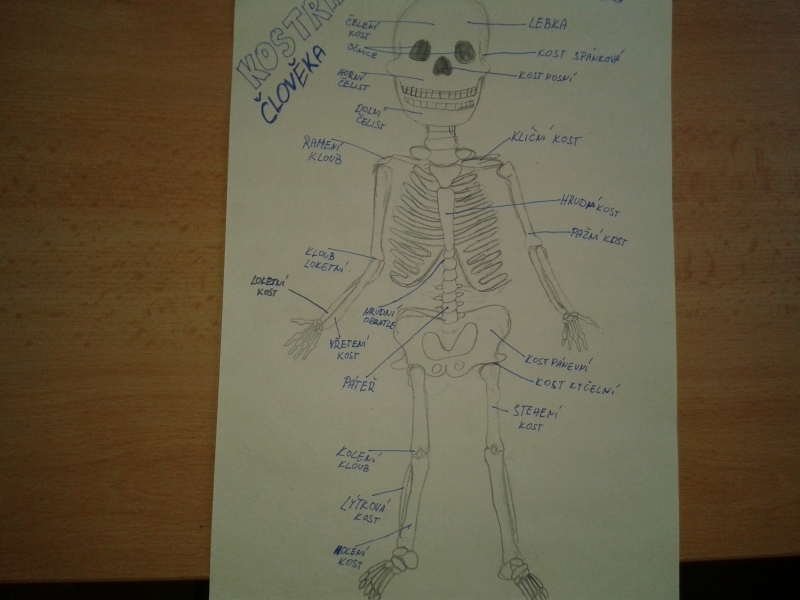 KOSTRA
ČLOVĚKA
ČELENÍ
KOST
OČNICE
HORNÍ
ČELIST
DOLNÍ
ČELIST
LEBKA
KOST SPÁNKOVÁ
KOST NOSNÍ
RAMENÍ
KLOUB
KLÍČNÍ KOST
HRUDNÍ KOST
PAŽNÍ KOST
KLOUB
LOKETNÍ
LOKETNÍ
KOST
VŘETENÍ
KOST
HRUDNÍ
OBRATLE
PÁTEŘ
KOST PÁNEVNÍ
KOST KYČELNÍ
STEHENÍ
KOST
KOLENÍ
KLOUB
LÝTKOVÁ
KOST
HOLENÍ
KOST